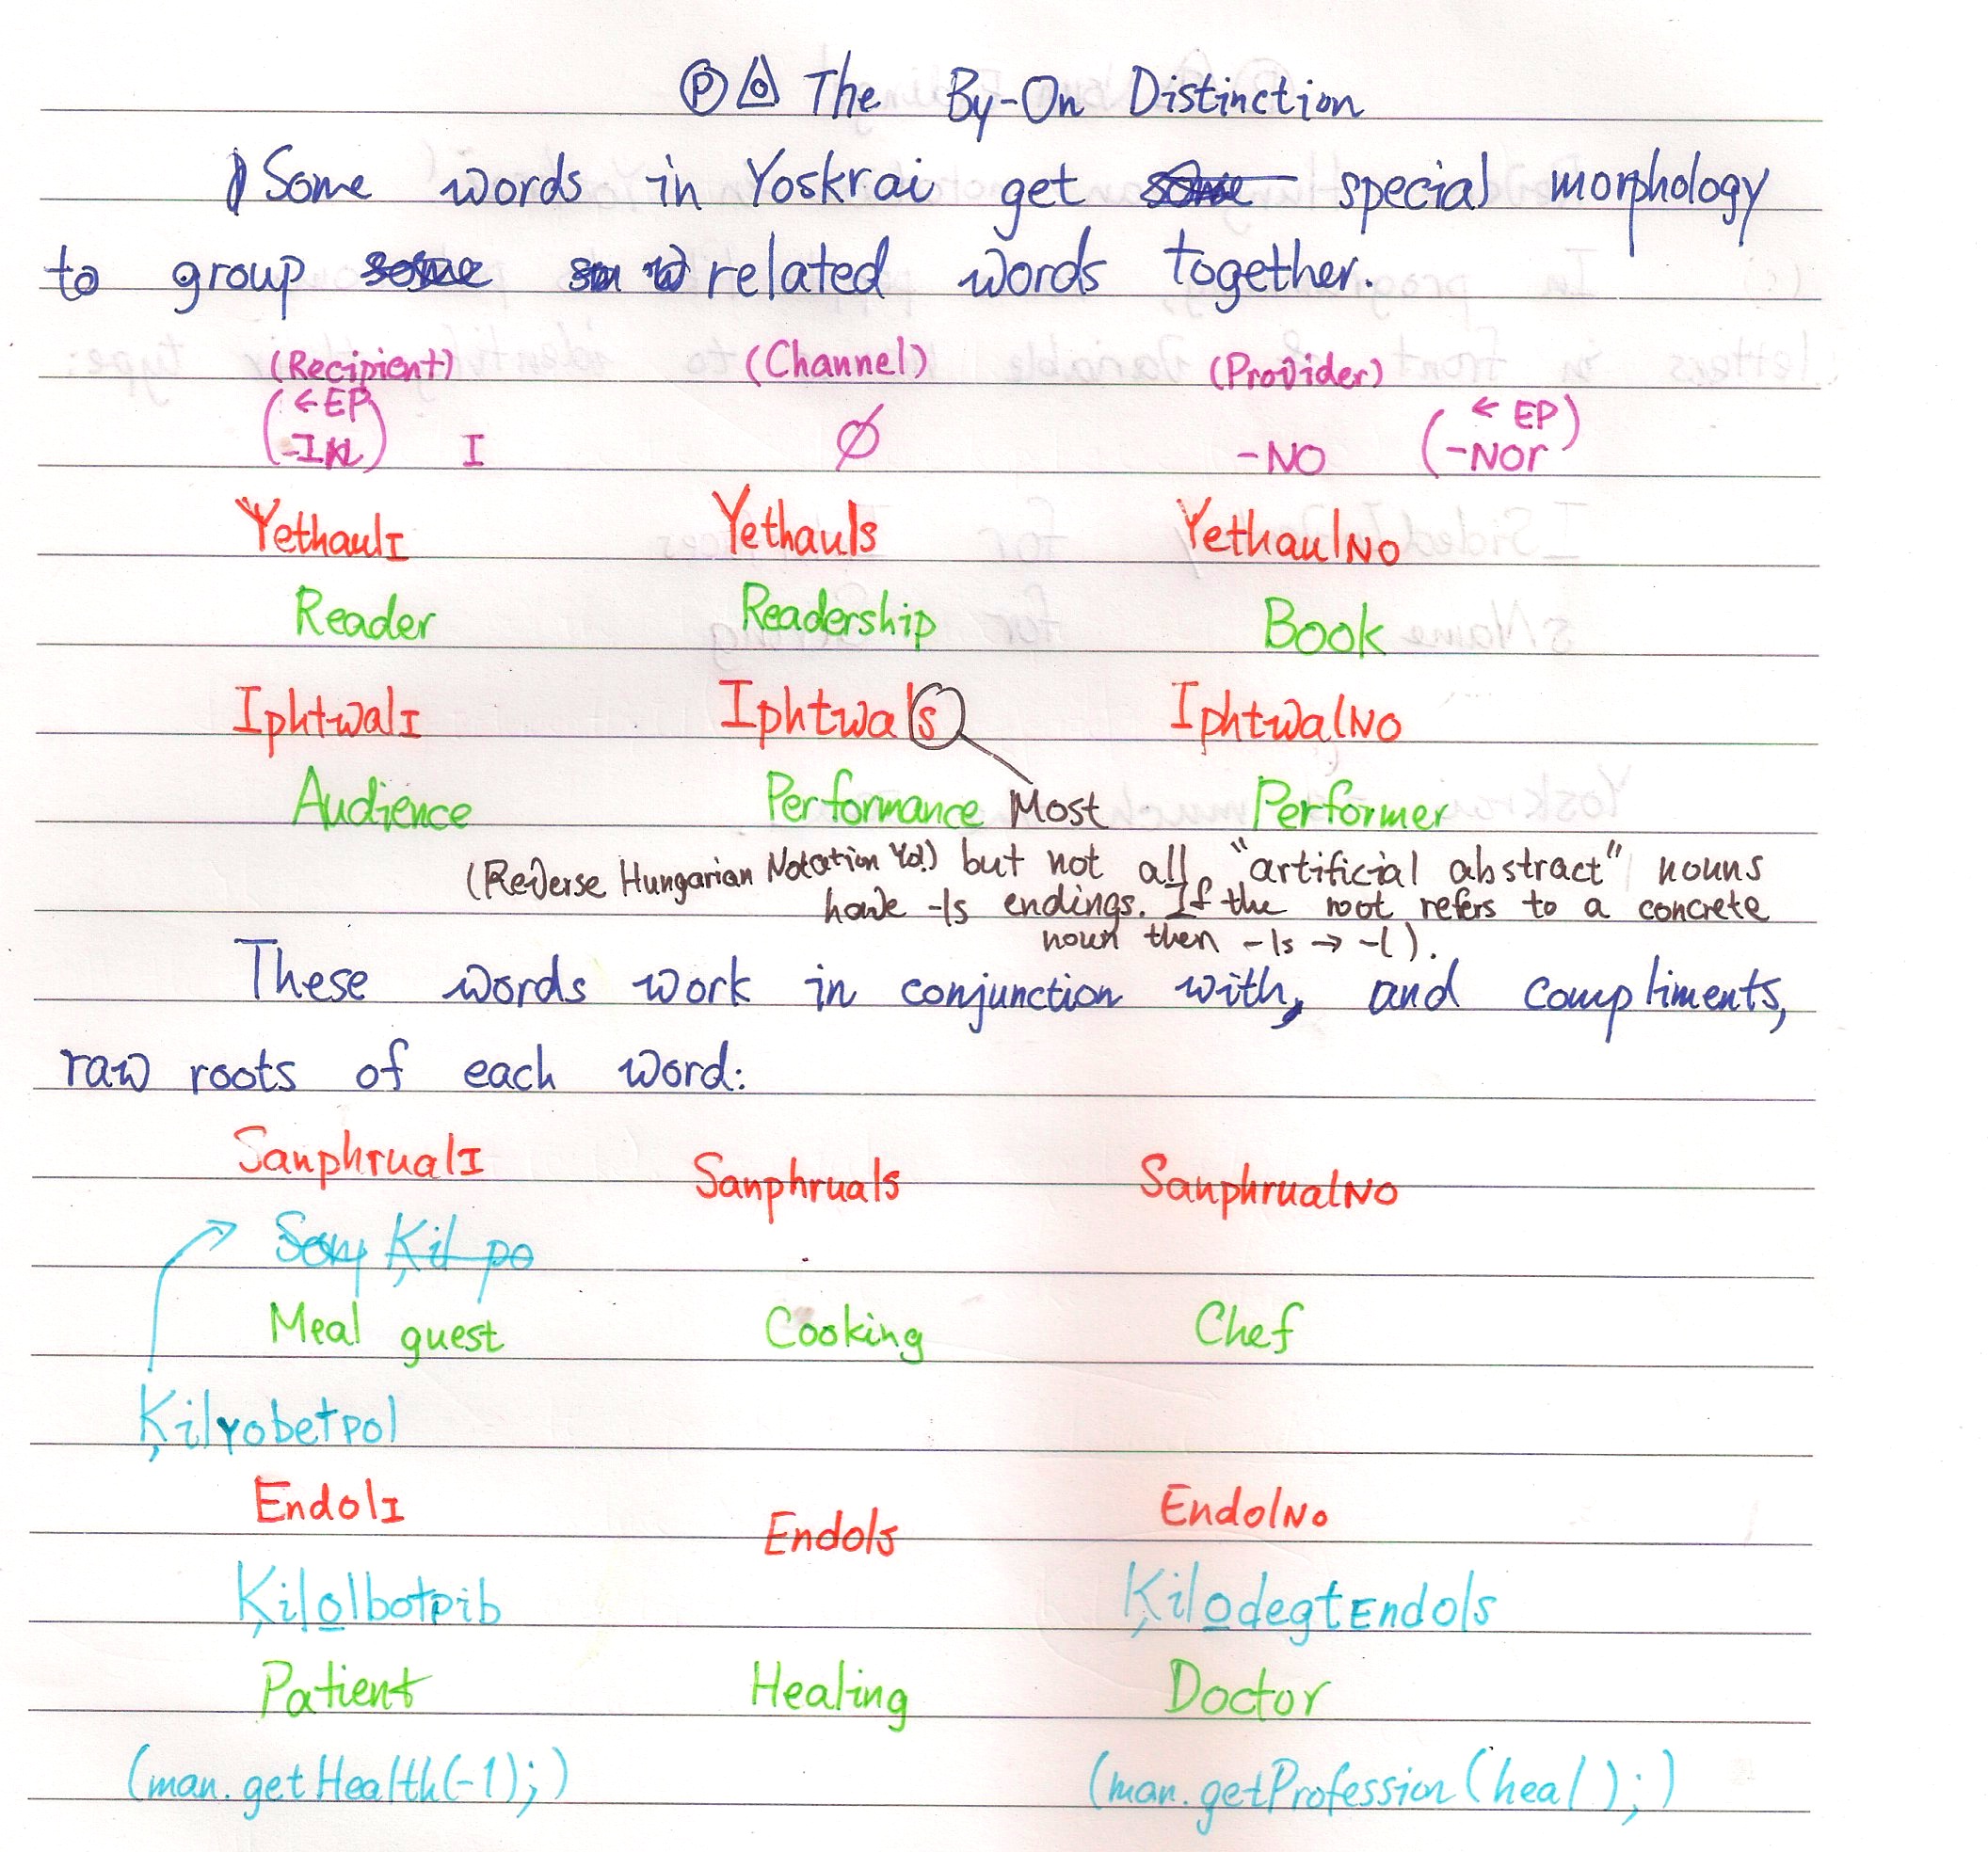 The By-On Distinction
Some words in Yoskrai get some special morphology
to group some related words together.
(Recipient) (Channel) (Provider)
(← EP ← EP)
I ∅ -NO (-NOr)
YethaulI Yethauls YethaulNO
Reader Readership Book
IphtwalI Iphtwals IphtwalNO
Audience Performance Most Performer
(Reverse Hungarian Notation but not all "artificial abstract" nouns
have -ls endings. If the root refers to a concrete
noun then -ls → -l).
These words work in conjunction with, and compliments,
raw roots of each word:
SanphrualI Sanphruals SanphrualNO
Meal guest Cooking Chef
Ķilyobetpol
EndolI Endols EndolNO
Ķilo̲lbotpib Ķilo̲degtEndols
Patient Healing Doctor
(man.getHealth(-1);) (man.getProfession(heal);)